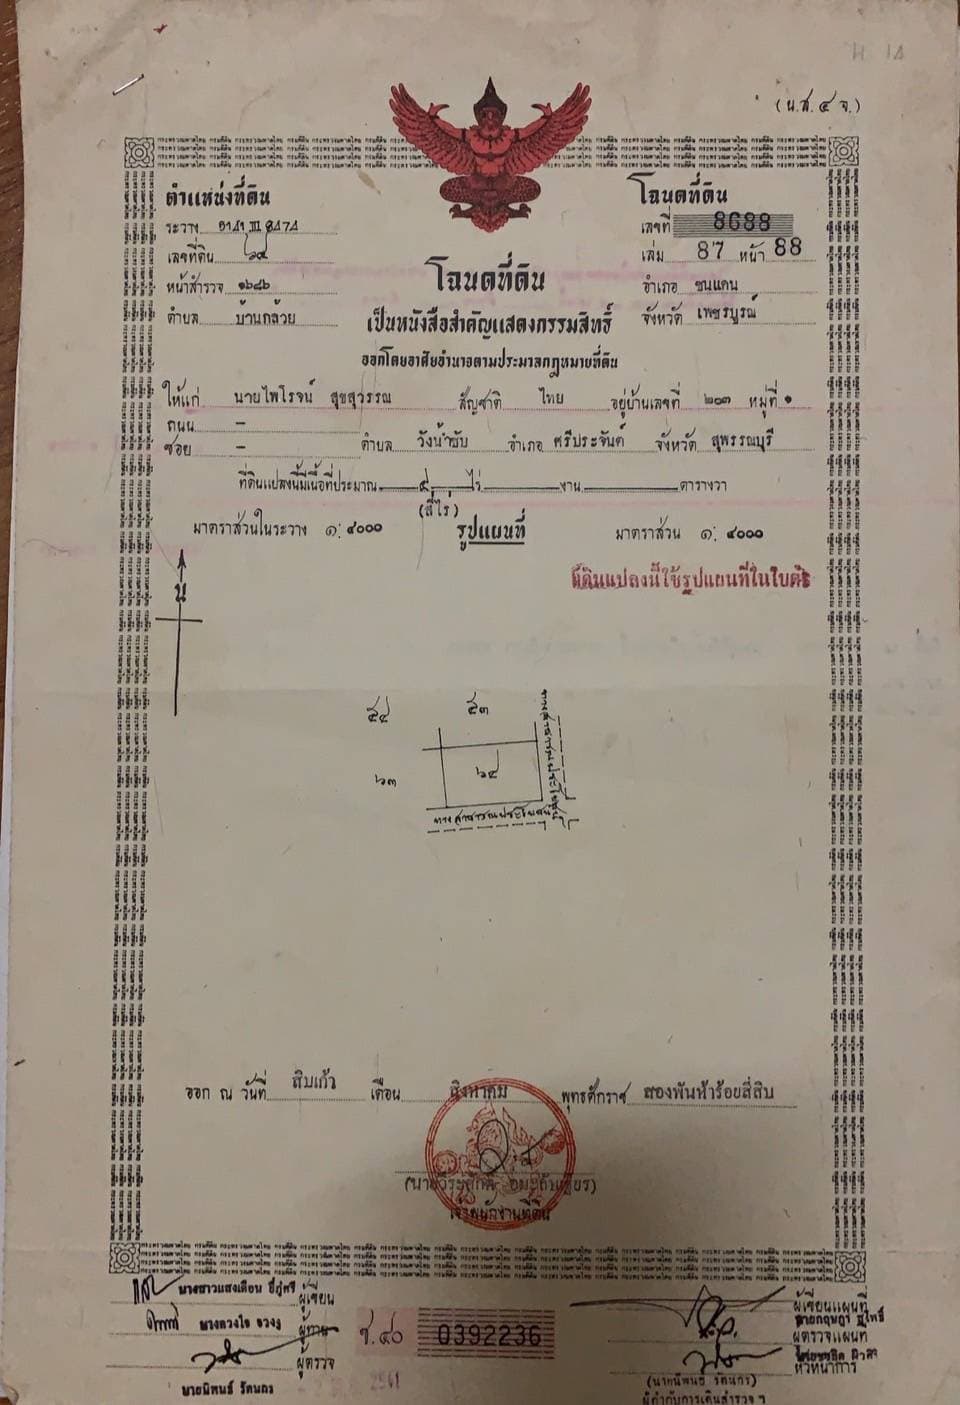 (น.ส.๔ จ.)
ตำแหน่งที่ดิน
ระวาง III 8474
เลขที่ดิน ๖๔
หน้าสำรวจ ๑๖๘๖
ตำบล บ้านกล้วย
โฉนดที่ดิน
เลขที่ 8688
เล่ม 87 หน้า 88
อำเภอ ชนแดน
จังหวัด เพชรบูรณ์
โฉนดที่ดิน
เป็นหนังสือสำคัญแสดงกรรมสิทธิ์
ออกโดยอาศัยอำนาจตามประมวลกฎหมายที่ดิน
ให้แก่ นายไพโรจน์ สุขสุวรรณ สัญชาติ ไทย อยู่บ้านเลขที่ ๒๐๓ หมู่ที่ ๑
ถนน –
ซอย – ตำบล วังน้ำซับ อำเภอ ศรีประจันต์ จังหวัด สุพรรณบุรี
ที่ดินแปลงนี้มีเนื้อที่ประมาณ ๔ ไร่ งาน ตารางวา
(สี่ไร่)
มาตราส่วนในระวาง ๑: ๔๐๐๐ รูปแผนที่ มาตราส่วน ๑: ๔๐๐๐
ที่ดินแปลงนี้ใช้รูปแผนที่ในใบต่อ
น
๕๔ ๕๓
๖๓ ๖๔
ทางสาธารณประโยชน์
ทางสาธารณประโยชน์
ออก ณ วันที่ สิบเก้า เดือน สิงหาคม พุทธศักราช สองพันห้าร้อยสี่สิบ
เจ้าพนักงานที่ดิน
นางสาวแสงเดือน ผู้เขียน
นางดวงใจ ผู้ทาน
ผู้ตรวจ
นายนิพนธ์ รัตนกร
ช.๔๐ 0392236
ผู้เขียนแผนที่
ผู้ตรวจแผนที่
หัวหน้าการ
(นายนิพนธ์ รัตนกร)
ผู้กำกับการเดินสำรวจ ฯ